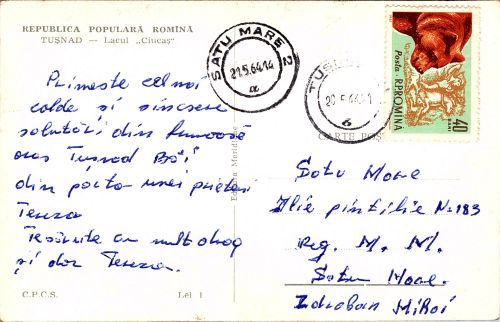 REPUBLICA POPULARĂ ROMÎNĂ
TUȘNAD — Lacul „Ciucaș"
Primește cel mai
calde și sincere
salutări din frumosul
oraș Tușnad Băi
din partea unei prietene
Tereza
Te sărută cu mult drag
și dor Tereza.
C.P.C.S.
Lei 1
Editura Meridiane
SATU MARE 2
21.5.64.14
a
TUȘNAD
20.5.64
6
CARTE POȘTALĂ
Posta R.P.ROMINA
40
BANI
Satu Mare
Ilie pintilie No 183
Reg. M. M.
Satu Mare.
Zdroban Mihai